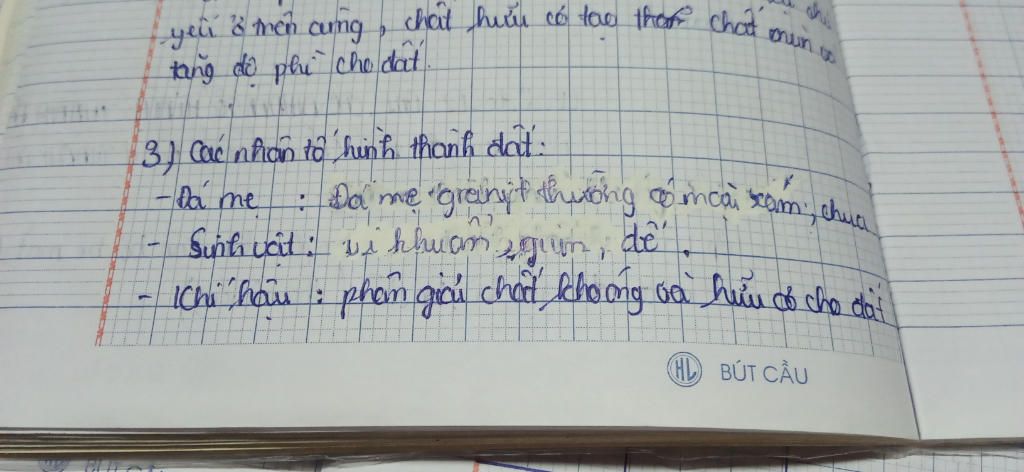 yếu ở miền cứng, chất hữu cơ tạo thàn chất mùn
tăng độ phì cho đất.
3) Các nhân tố hình thành đất:
- Đá mẹ : Đá mẹ granit thường có màu xám, chua
- Sinh vật : vi khuẩn, giun, dế.
- Khí hậu : phân giải chất khoáng và hữu cơ cho đất
HL BÚT CẦU